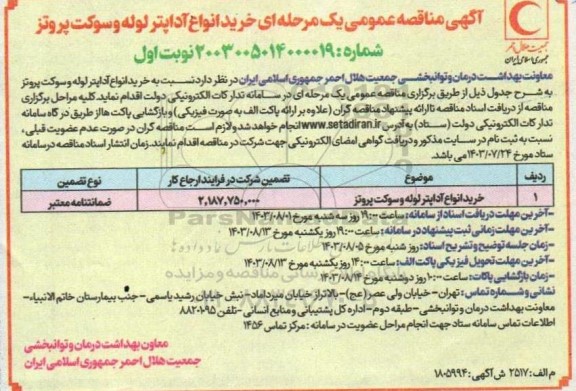 آگهی مناقصه عمومی یک مرحله ای خرید انواع آداپتر لوله و سوکت پروتز
شماره: ۲۰۰۳۰۰۵۰۱۴۰۰۰۰۱۹ نوبت اول
جمعیت هلال احمر
جمهوری اسلامی ایران
معاونت بهداشت درمان و توانبخشی جمعیت هلال احمر جمهوری اسلامی ایران در نظر دارد نسبت به خرید انواع آداپتر لوله و سوکت پروتز
به شرح جدول ذیل از طریق برگزاری مناقصه عمومی یک مرحله ای در سامانه تدارکات الکترونیکی دولت اقدام نماید. کلیه مراحل برگزاری
مناقصه از دریافت اسناد مناقصه تا ارائه پیشنهاد مناقصه گران (علاوه بر ارائه پاکت الف به صورت فیزیکی) و بازگشایی پاکت ها از طریق درگاه سامانه
تدارکات الکترونیکی دولت (ستاد) به آدرس www.setadiran.ir انجام خواهد شد و لازم است مناقصه گران در صورت عدم عضویت قبلی،
نسبت به ثبت نام در سایت مذکور و دریافت گواهی امضای الکترونیکی جهت شرکت در مناقصه اقدام نمایند. زمان انتشار اسناد مناقصه در سامانه
ستاد مورخ ۱۴۰۳/۰۷/۲۴ می باشد.
ردیف موضوع تضمین شرکت در فرایند ارجاع کار نوع تضمین
۱ خرید انواع آداپتر لوله و سوکت پروتز ۲,۱۸۷,۷۵۰,۰۰۰ ضمانتنامه معتبر
-آخرین مهلت دریافت اسناد از سامانه: ساعت ۱۹:۰۰ روز سه شنبه مورخ ۱۴۰۳/۰۸/۰۱
-آخرین مهلت زمانی ثبت پیشنهاد در سامانه: ساعت ۱۹:۰۰ روز یکشنبه مورخ ۱۴۰۳/۰۸/۱۳
-زمان جلسه توضیح و تشریح اسناد: روز شنبه مورخ ۱۴۰۳/۰۸/۰۵
-آخرین مهلت تحویل فیزیکی پاکت الف: ساعت ۱۴:۰۰ روز یکشنبه مورخ ۱۴۰۳/۰۸/۱۳
-زمان بازگشایی پاکات: ساعت ۱۰:۰۰ روز دوشنبه مورخ ۱۴۰۳/۰۸/۱۴
نشانی و شماره تماس: تهران- خیابان ولی عصر(عج)- بالاتر از خیابان میرداماد- نبش خیابان رشید یاسمی- جنب بیمارستان خاتم الانبیاء-
معاونت بهداشت درمان و توانبخشی- طبقه دوم- اداره کل پشتیبانی و منابع انسانی- تلفن ۸۸۲۰۱۰۹۵
اطلاعات تماس سامانه ستاد جهت انجام مراحل عضویت در سامانه: مرکز تماس ۱۴۵۶
معاون بهداشت درمان و توانبخشی
جمعیت هلال احمر جمهوری اسلامی ایران
م الف: ۲۵۱۷ ش آگهی: ۱۸۰۵۹۹۴